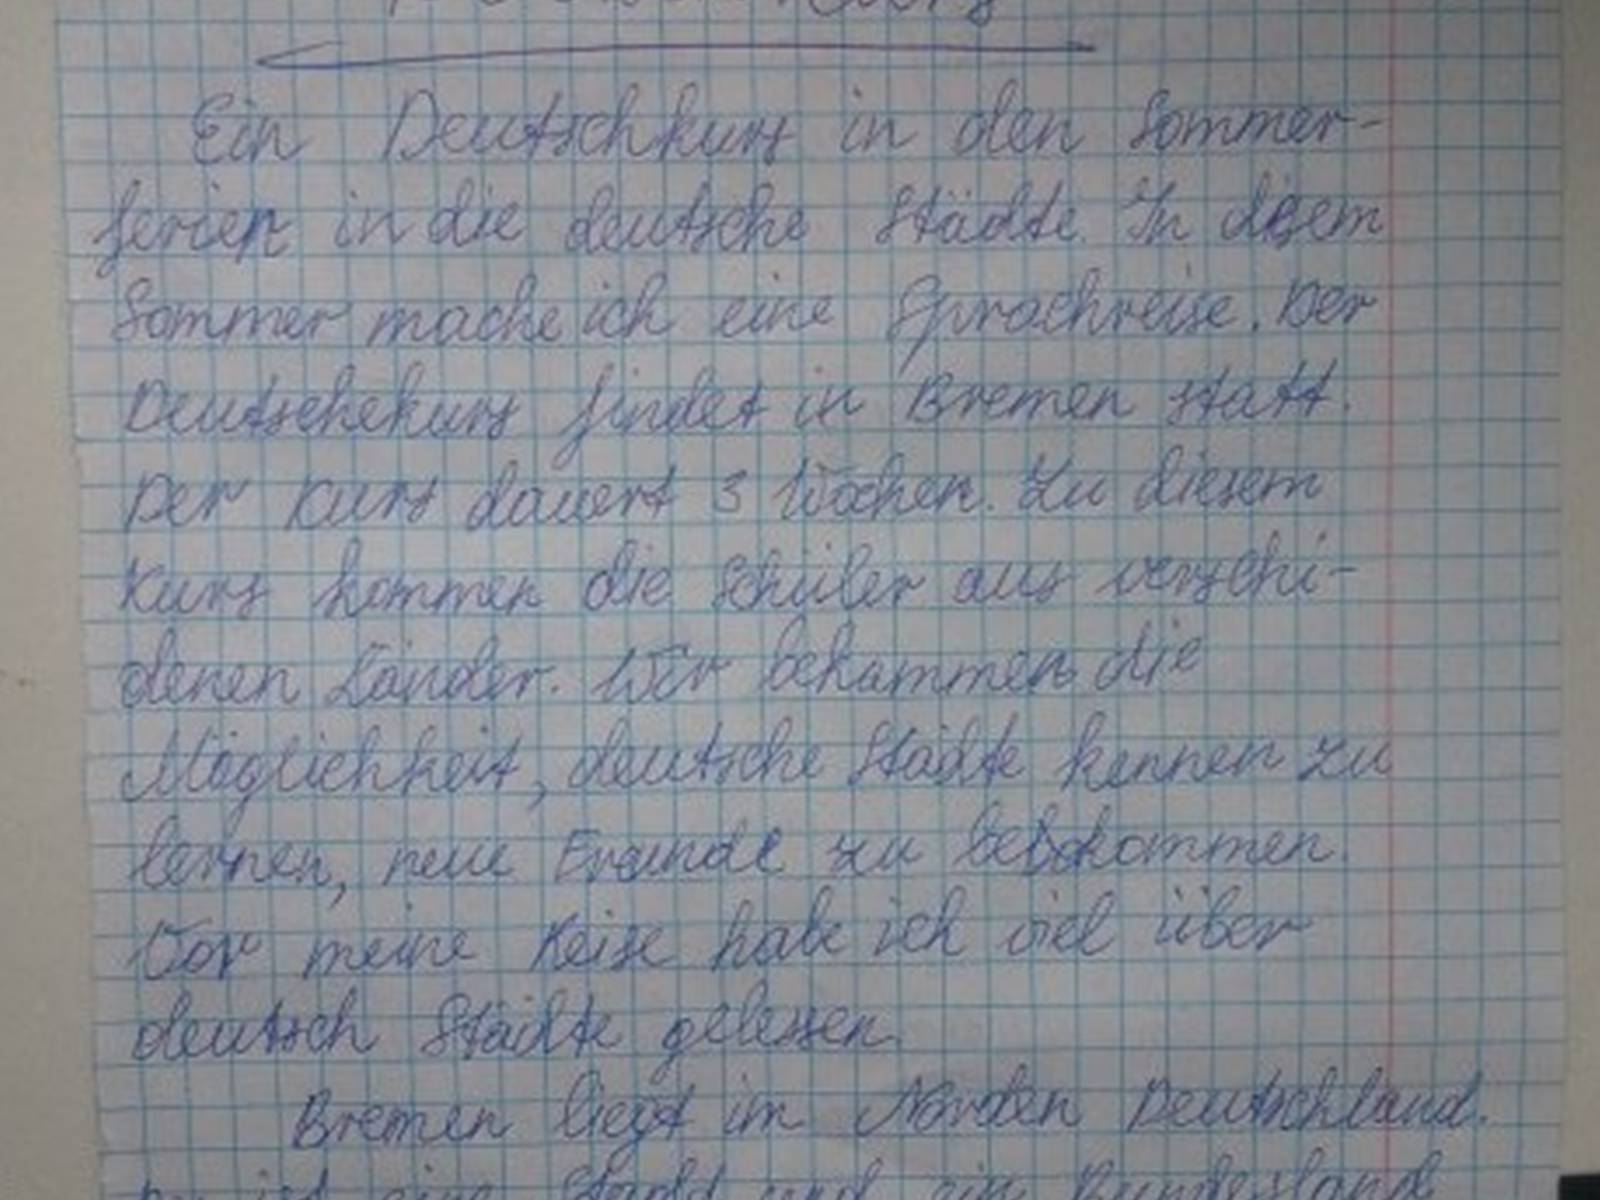 Ein Deutschkurs in den Sommer-
ferien in die deutsche Städte. In disem
Sommer mache ich eine Sprachreise. Der
Deutschekurs findet in Bremen statt.
Der Kurs dauert 3 Wochen. Zu diesem
Kurs kommen die Schüler aus verschi-
denen Länder. Wir bekammen die
Möglichkeit, deutsche Städte kennen zu
lernen, neue zu
Vor meine Reise habe ich viel über
deutsch Städte gelessen.
Bremen liegt im Norden Deutschland.
ist eine Stadt und ein Bundesland